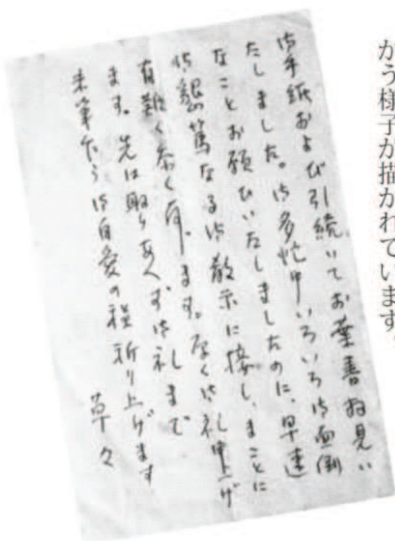 かう様子が描かれています。
御手紙および引続いてお葉書拝見い
たしました。御多忙中いろいろ御面倒
なことお願ひいたしましたのに、早速
御懇篤なる御教示に接し、まことに
有難く忝く存じます。厚く御礼申上げ
ます。先は取りあへず御礼まで
末筆乍ら御自愛の程祈り上げます
草々